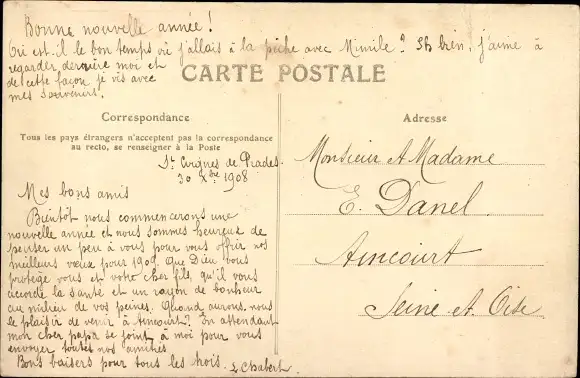 Bonne nouvelle année !
Où est-il le bon temps où j'allais à la pêche avec Mimile ? Eh bien, j'aime à
regarder derrière moi et
de cette façon je vis avec
mes souvenirs.
CARTE POSTALE
Correspondance
Tous les pays étrangers n'acceptent pas la correspondance
au recto, se renseigner à la Poste
St de Prades.
30 Xbre 1908
Mes bons amis
Bientôt nous commencerons une
nouvelle année et nous sommes heureux de
penser un peu à vous pour vous offrir nos
meilleurs vœux pour 1909. Que Dieu vous
protège vous et votre cher fils, qu'il vous
accorde la santé et un rayon de bonheur
au milieu de vos peines. Quand aurons-nous
le plaisir de venir à Aincourt ? En attendant
mon cher papa se joint à moi pour vous
envoyer toutes nos amitiés
Bons baisers pour tous les trois. L Chabert.
Adresse
Monsieur et Madame
E. Danel
Aincourt
Seine et Oise